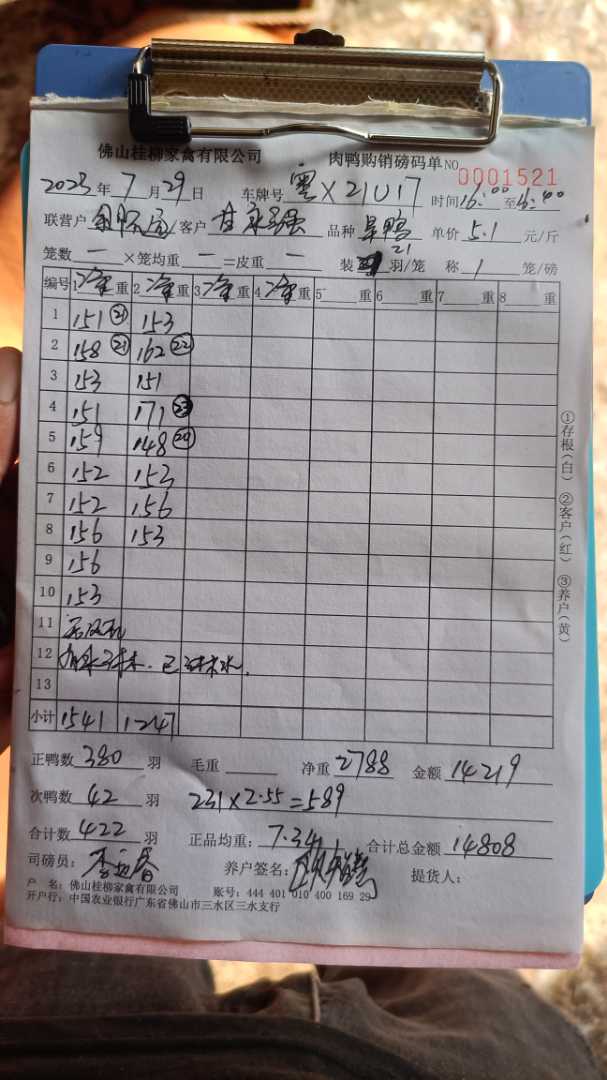 佛山桂柳家禽有限公司 肉鸭购销磅码单 NO 0001521
2023年 7 月 29 日 车牌号 粤X21U17 时间 16:00 至 16:40
联营户 客户 甘 品种 旱鸭 单价 5.1 元/斤
笼数 — ×笼均重 — =皮重 — 装 21 羽/笼 称 1 笼/磅
编号 1 净重 2 净重 3 净重 4 净重 5 重 6 重 7 重 8 重
1 151 ㉑ 153
2 158 ㉑ 162 ㉒
3 153 151
4 151 171 ㉓
5 159 148 ⑳
6 152 153
7 152 156
8 156 153
9 156
10 153
11
12
13
小计 1541 1247
正鸭数 380 羽 毛重 净重 2788 金额 14219
次鸭数 42 羽 231×2.55=589
合计数 422 羽 正品均重: 7.34 合计总金额 14808
司磅员: 李 春 养户签名: 提货人:
户 名: 佛山桂柳家禽有限公司 账号: 444 401 010 400 169 29
开户行: 中国农业银行广东省佛山市三水区三水支行
①存根(白) ②客户(红) ③养户(黄)